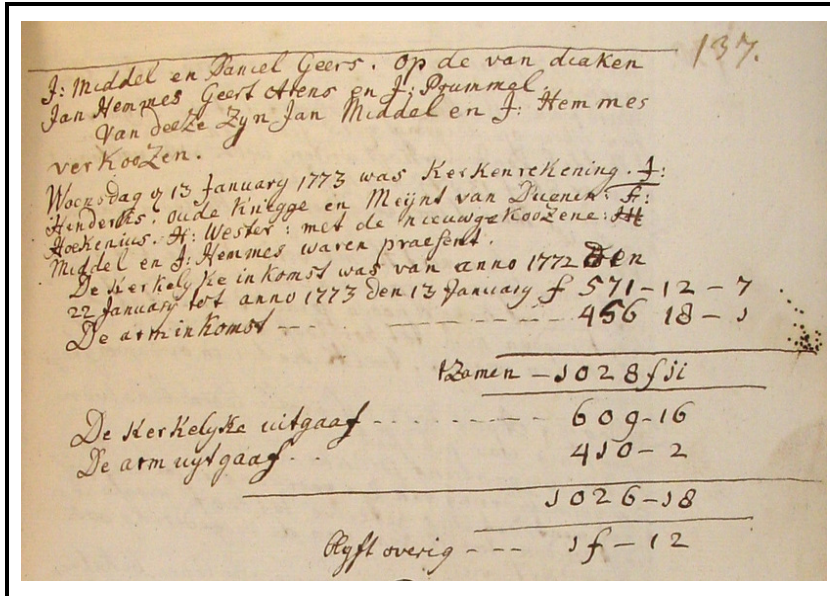 137.
J: Middel en Daniel Geers. Op de van diaken
Jan Hemmes Geert Atens en J: Prummel.
Van deeze Zyn Jan Middel en J: Hemmes
verkoozen.
Woensdag 13 January 1773 was Kerkenrekening. J:
Hinderks: oude Knegge en Meijnt van Duenen: F:
Hoekenius. H: Wester: met de nieuwgekoozene:
Middel en J: Hemmes waren praesent.
De kerkelyke inkomst was van anno 1772 den
22 January tot anno 1773 den 13 January f 571-12-7
De arm inkomst --- 456 18-1
tzamen - 1028 f 11
De Kerkelyke uitgaaf - - - 609-16
De arm uytgaaf . . 410-2
1026-18
Blyft overig --- 1f-12